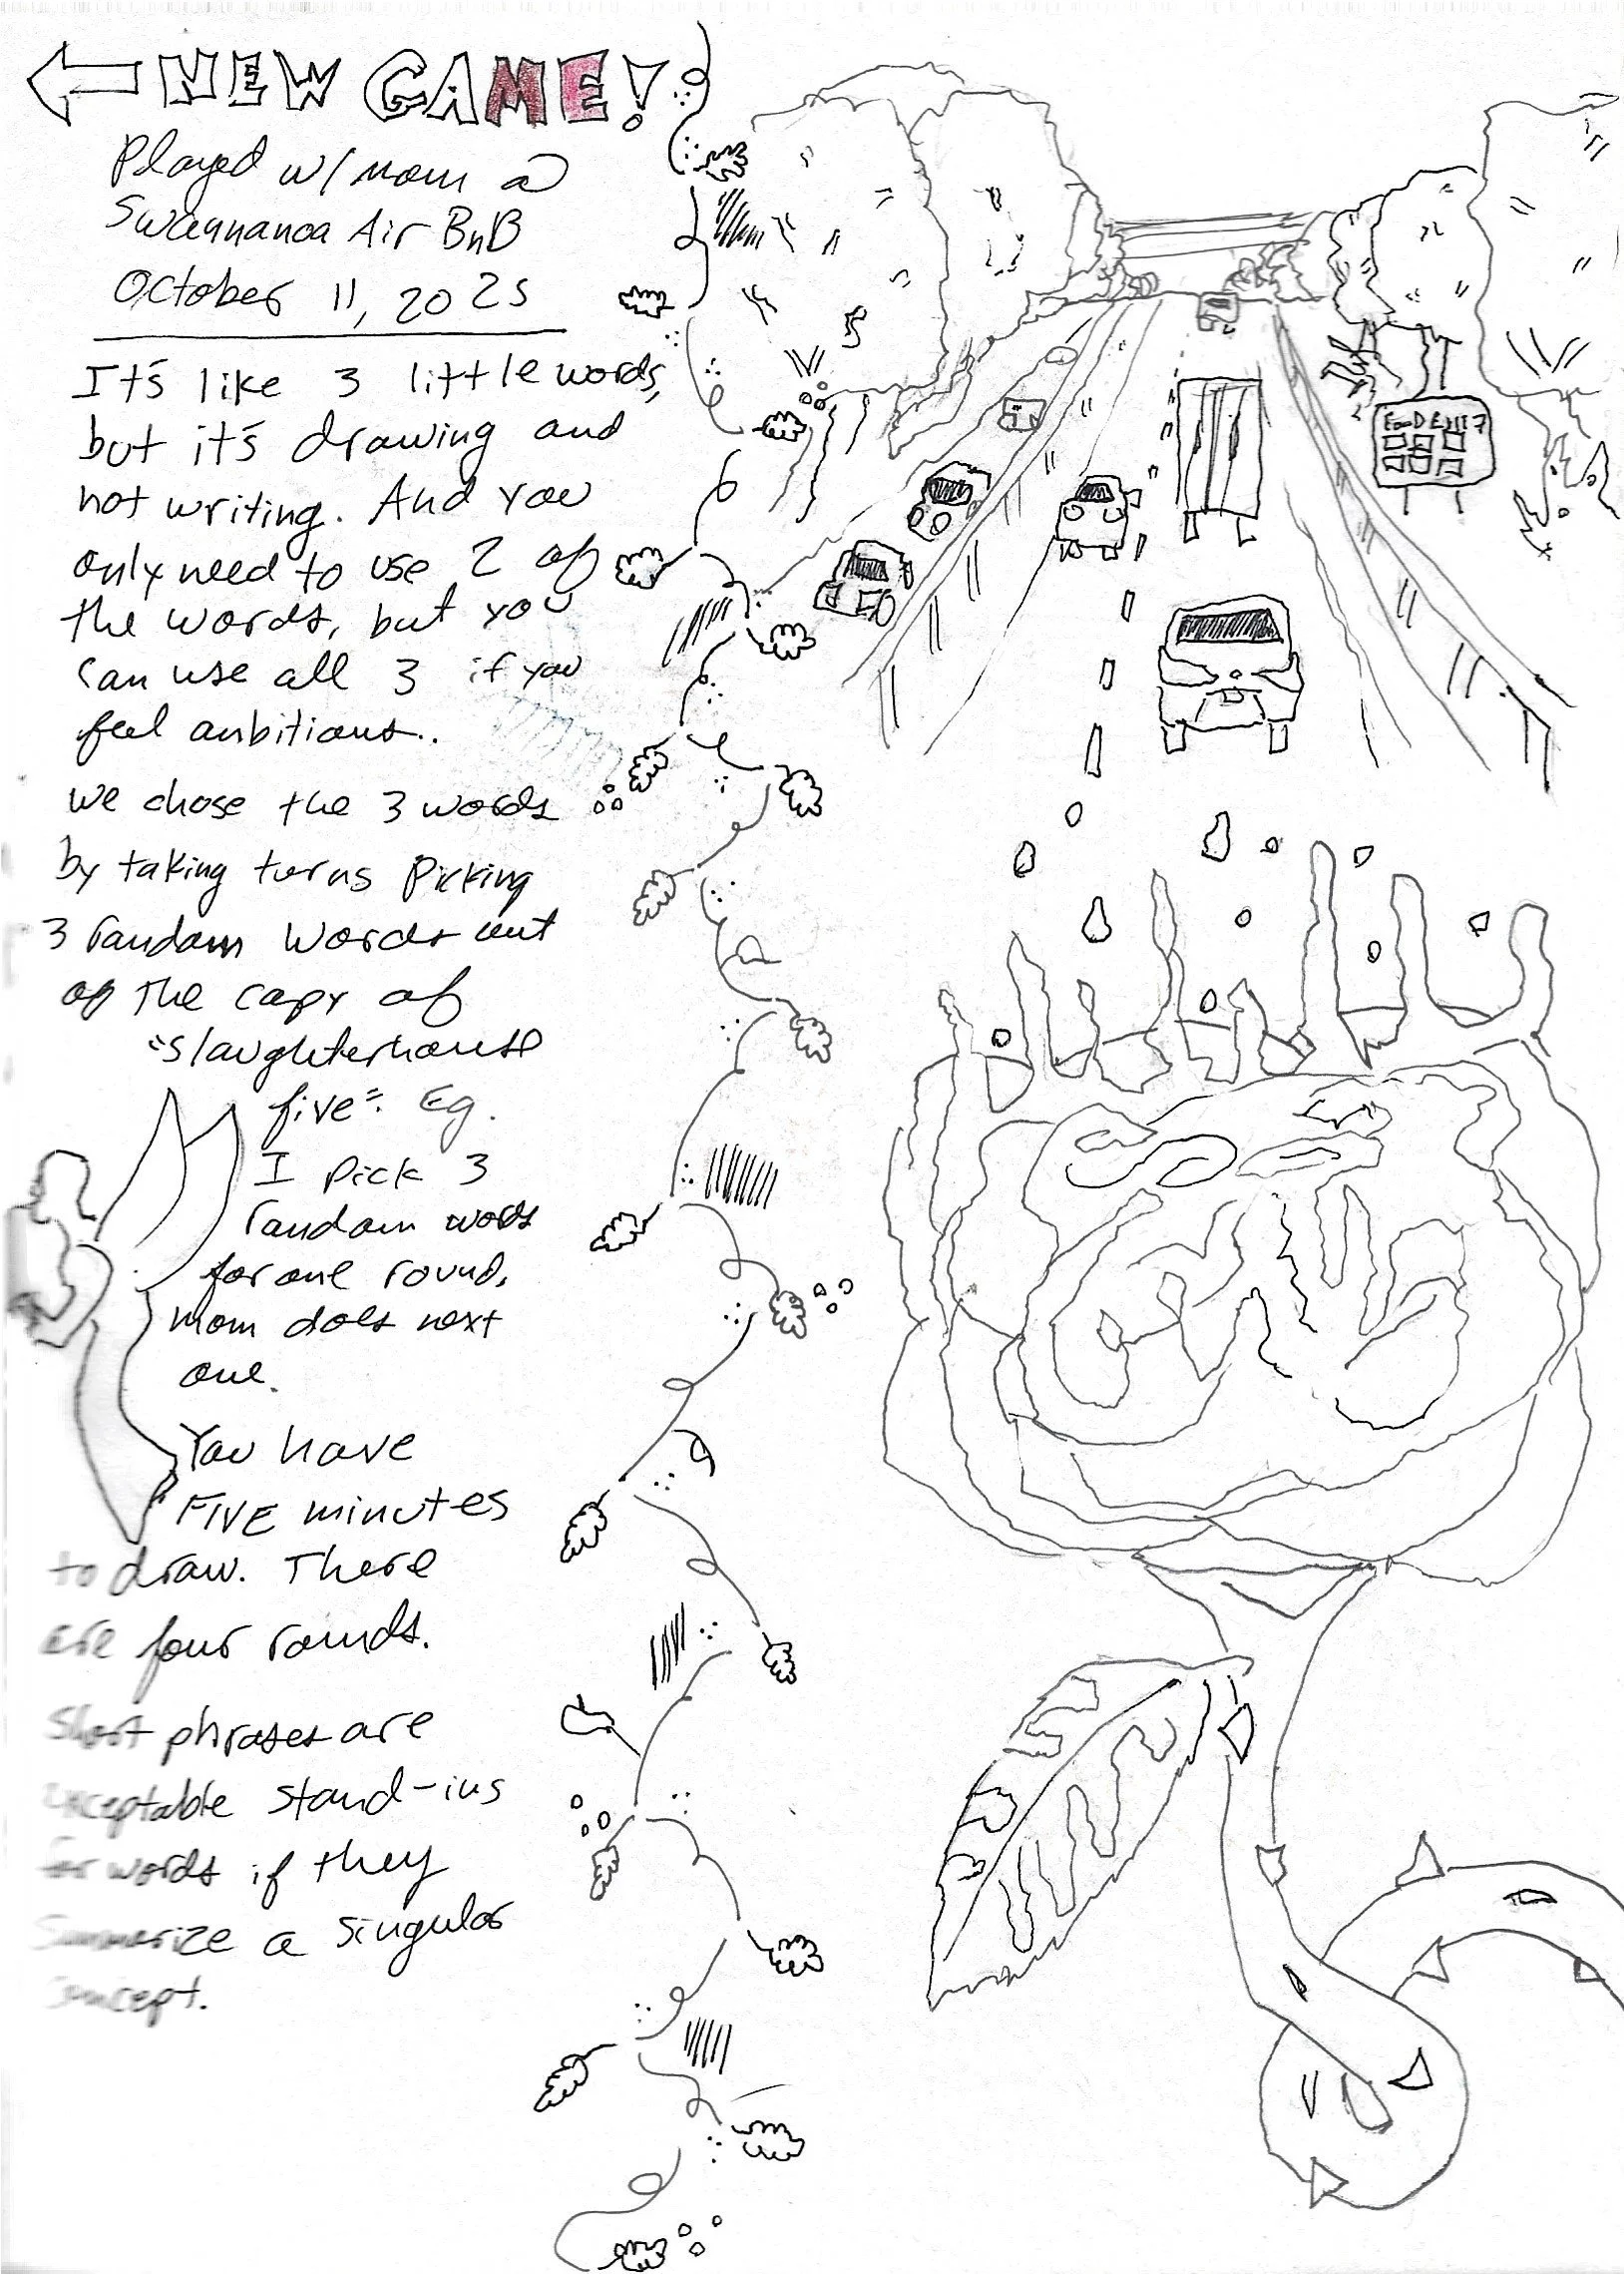 NEW GAME!
Played w/ mom @
Swannanoa Air BnB
October 11, 2025
It's like 3 little words,
but it's drawing and
not writing. And you
only need to use 2 of
the words, but you
can use all 3 if you
feel ambitious..
We chose the 3 words
by taking turns picking
3 random words out
of the copy of
"Slaughterhouse
five". Eg.
I pick 3
random words
for one round,
mom does next
one.
You have
FIVE minutes
to draw. There
are four rounds.
Short phrases are
acceptable stand-ins
for words if they
Summarize a singular
concept.
FOOD EXIT 7